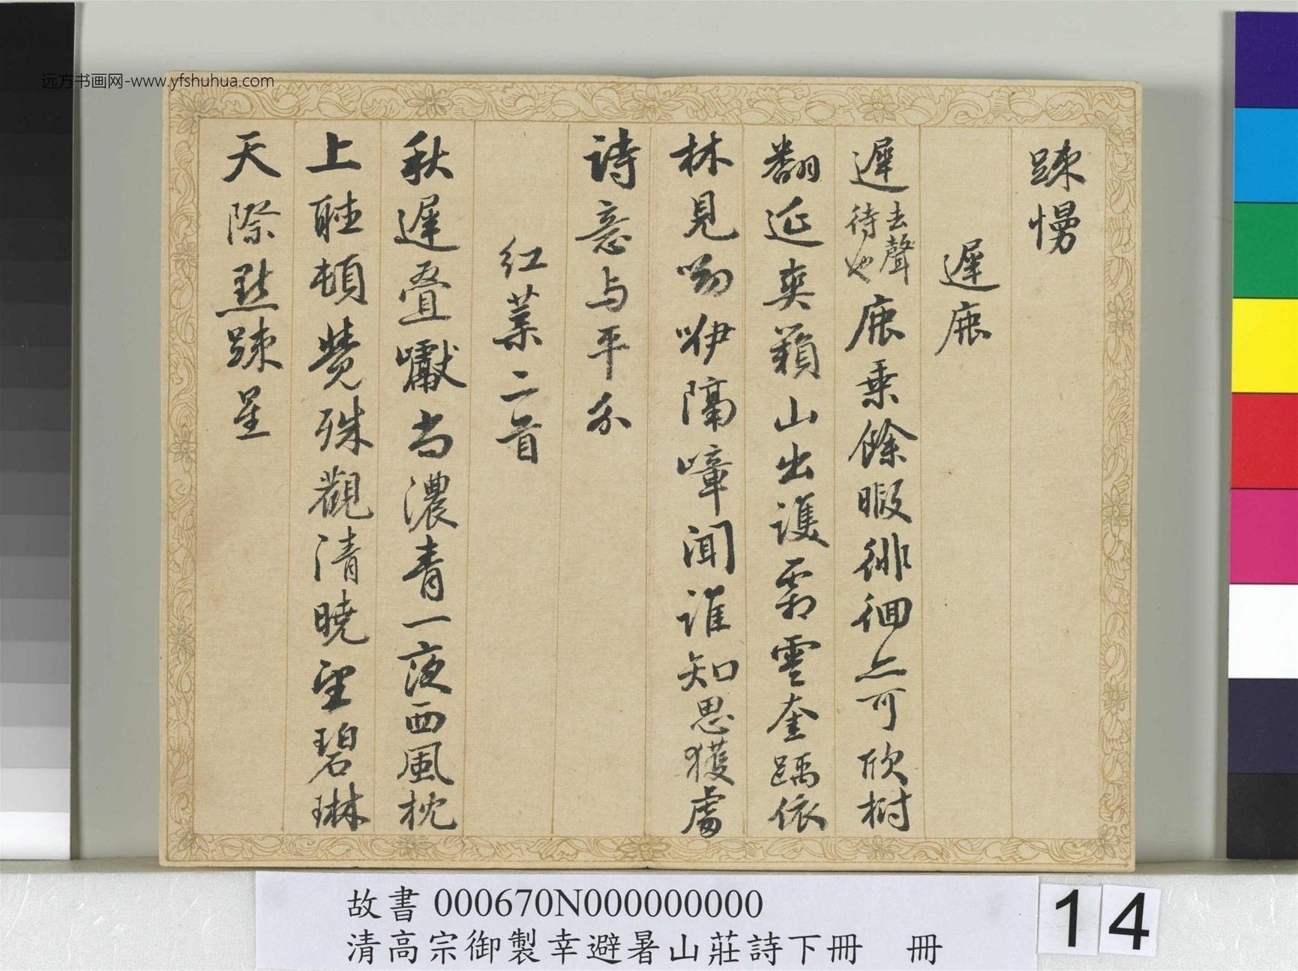 远方书画网-www.yfshuhua.com
踈慢
遲鹿
遲去聲待也鹿乗餘暇徘徊亦可欣樹
翻延爽籟山出護霜雲奎踽依
林見呦咿隔嶂聞誰知思獲處
詩意与平分
紅葉二首
秋遲叠巘尚濃青一夜西風枕
上聴頓覺殊觀清曉望碧琳
天際點踈星
故書 000670N000000000
清高宗御製幸避暑山莊詩下冊 冊
14